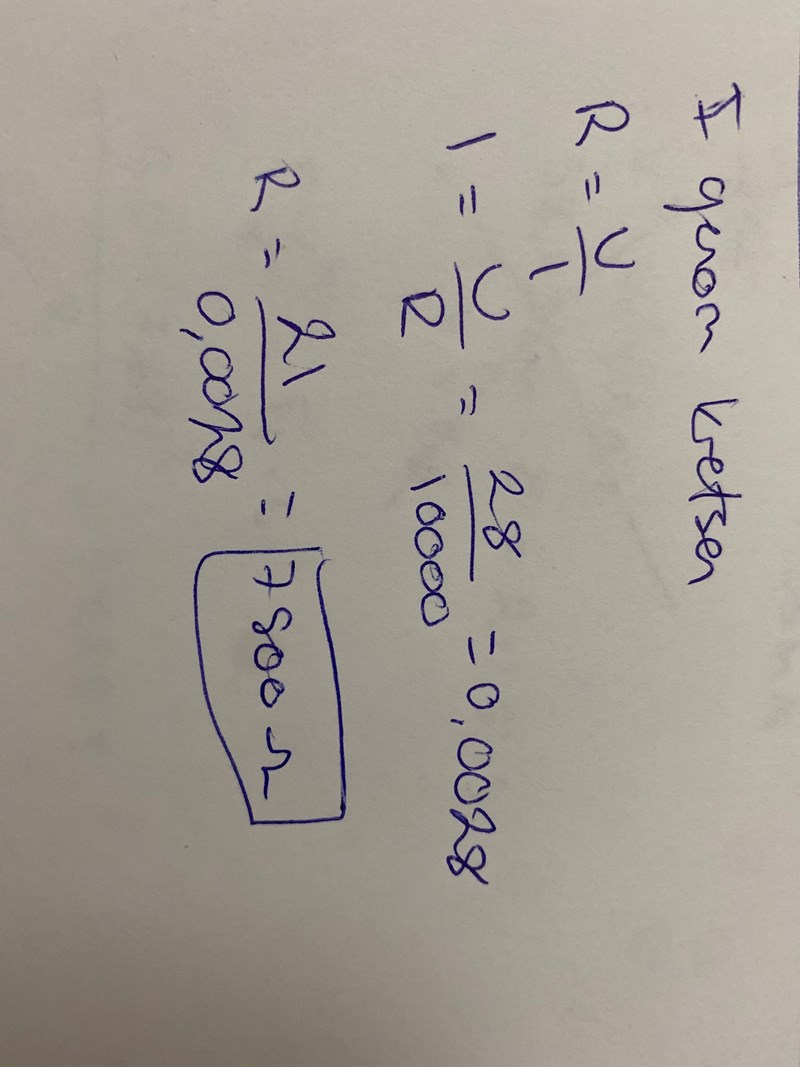 I genom kretsen
R = U/I
I = U/R = 28/10000 = 0,0028
R = 21/0,0028 = 7500 Ω